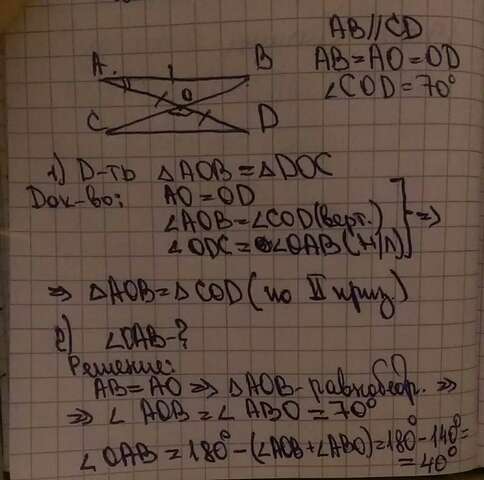 AB//CD
AB=AO=OD
∠COD=70°
A. B
O
C D
1) Д-ть △AOB=△DOC
Док-во: AO=OD
∠AOB=∠COD(верт.)
∠ODC=∠OAB(Н/Л) ⇒
⇒ △AOB=△COD(по II приз)
2) ∠OAB-?
Решение:
AB=AO ⇒ △AOB-равнобедр. ⇒
⇒ ∠AOB=∠ABO=70°
∠OAB=180°-(∠AOB+∠ABO)=180°-140°=
=40°